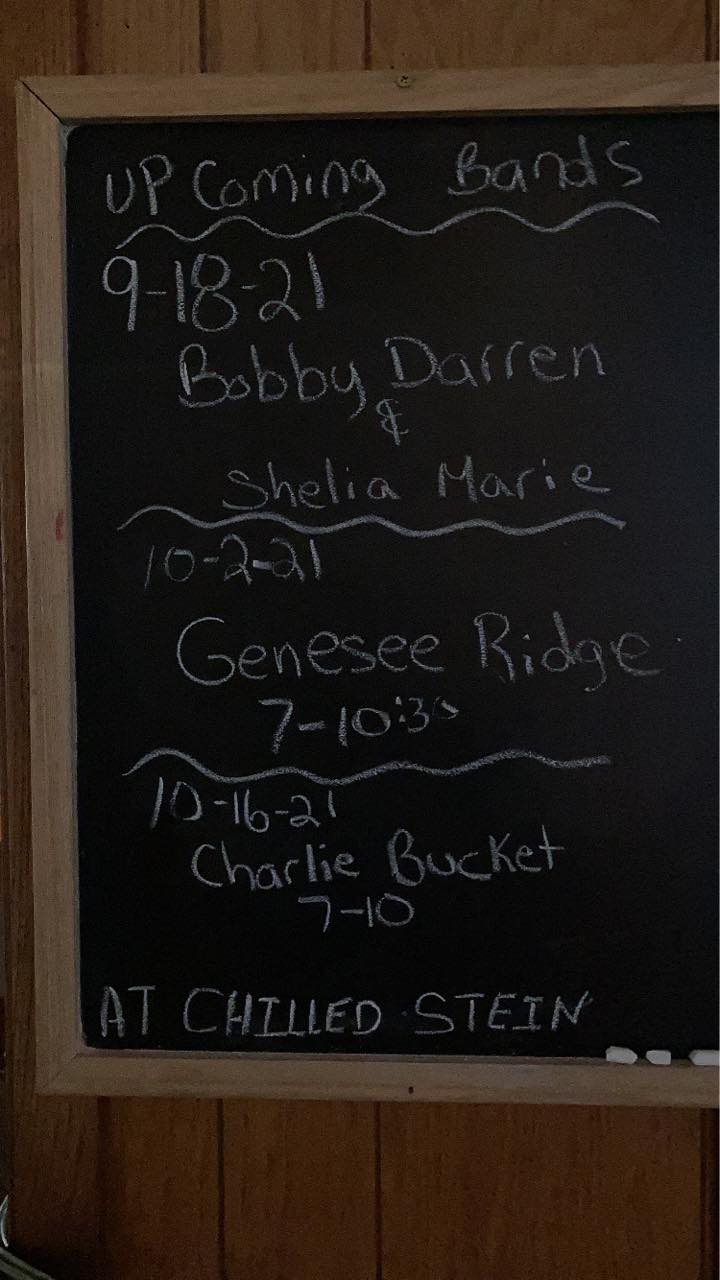 UP Coming Bands
9-18-21
Bobby Darren
&
Shelia Marie
10-2-21
Genesee Ridge
7-10:30
10-16-21
Charlie Bucket
7-10
AT CHILLED STEIN